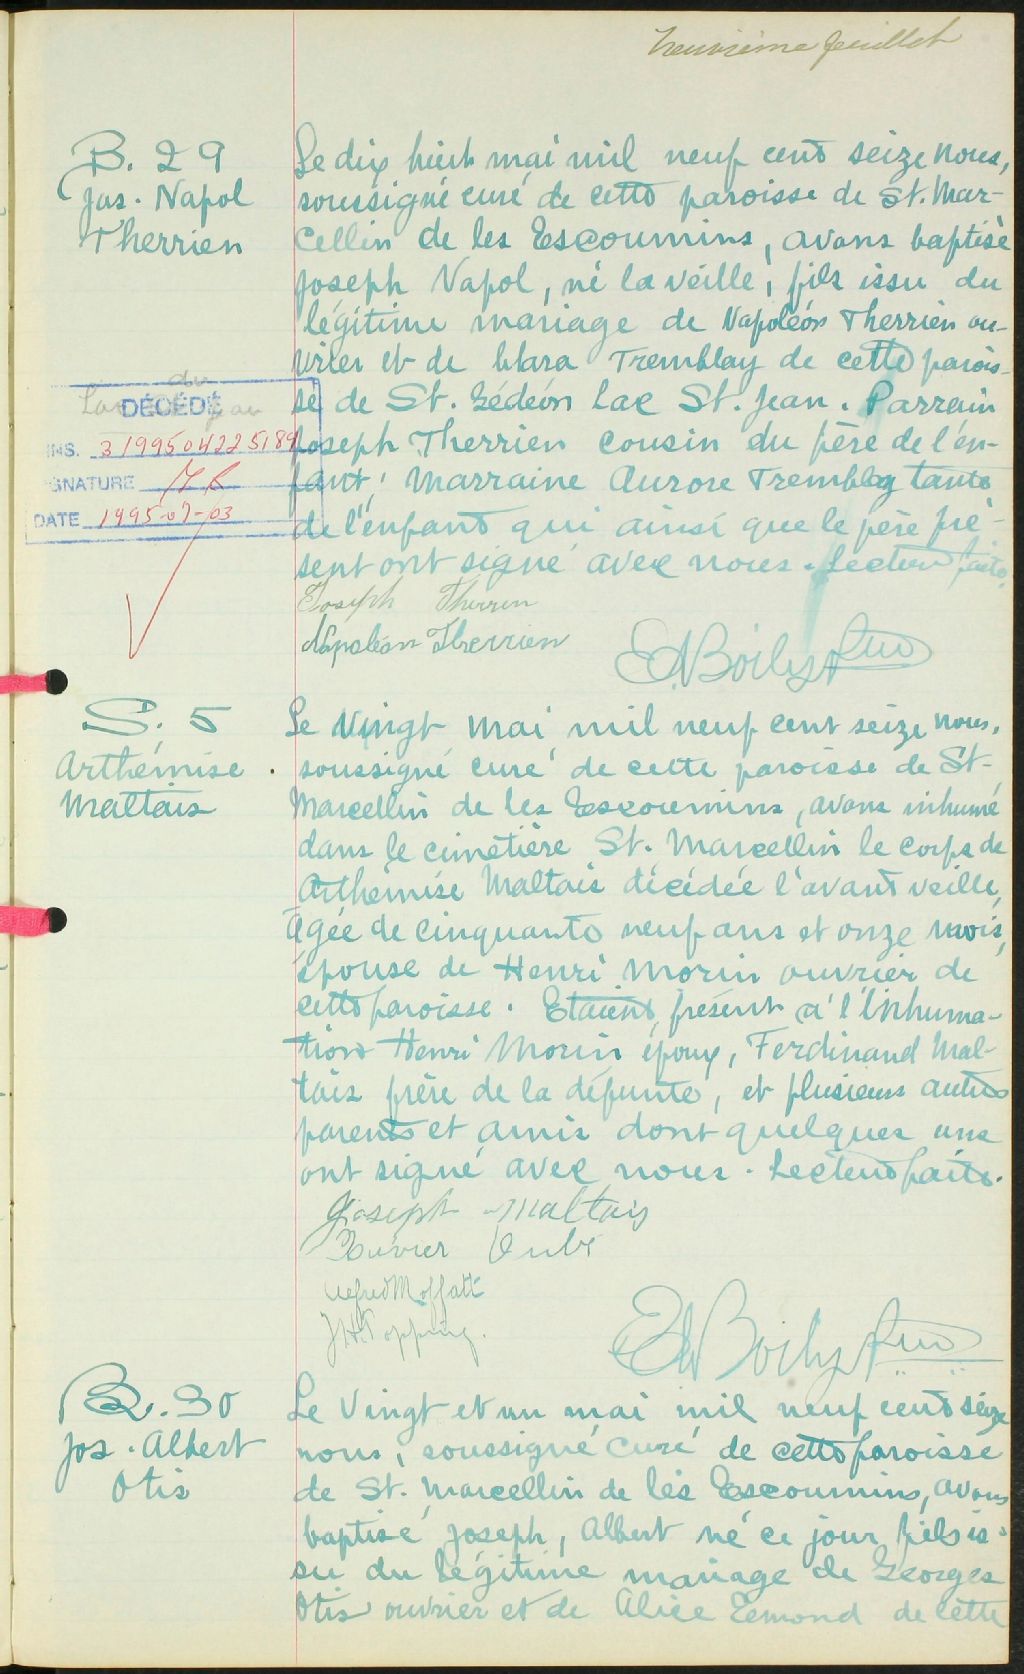 feuillet
B. 29
Jos. Napol
Therrien
Le dix huit mai mil neuf cent seize nous,
soussigné curé de cette paroisse de St. Mar-
cellin de les Escoumins, avons baptisé
Joseph Napol, né la veille, fils issu du
légitime mariage de Napoléon Therrien ou-
vrier et de Clara Tremblay de cette parois-
se de St. Gédéon Lac St. Jean. Parrain
Joseph Therrien cousin du père de l'en-
fant; Marraine Aurore Tremblay tante
de l'enfant qui ainsi que le père pré-
sent ont signé avec nous. Lecture faite.
Joseph Therrien
Napoléon Therrien
E. Boily Ptre
DÉCÉDÉ
INS. 3199504225189
SIGNATURE
DATE 1995-07-03
S. 5
Arthémise
Maltais
Le Vingt mai mil neuf cent seize nous,
soussigné curé de cette paroisse de St-
Marcellin de les Escoumins, avons inhumé
dans le cimetière St. Marcellin le corps de
Arthémise Maltais décédée l'avant veille,
agée de cinquante neuf ans et onze mois,
épouse de Henri Morin ouvrier de
cette paroisse. Etaient présent à l'inhuma-
tion Henri Morin époux, Ferdinand Mal-
tais frère de la défunte, et plusieurs autres
parents et amis dont quelques uns
ont signé avec nous. Lecture faite.
Joseph Maltais
Alfred Moffatt
J H Topping.
Boily Ptre
B. 30
Jos. Albert
Otis
Le Vingt et un mai mil neuf cent seize
nous, soussigné curé de cette paroisse
de St. Marcellin de les Escoumins, avons
baptisé Joseph, Albert né ce jour fils is-
su du légitime mariage de Georges
Otis ouvrier et de Alice Emond de cette